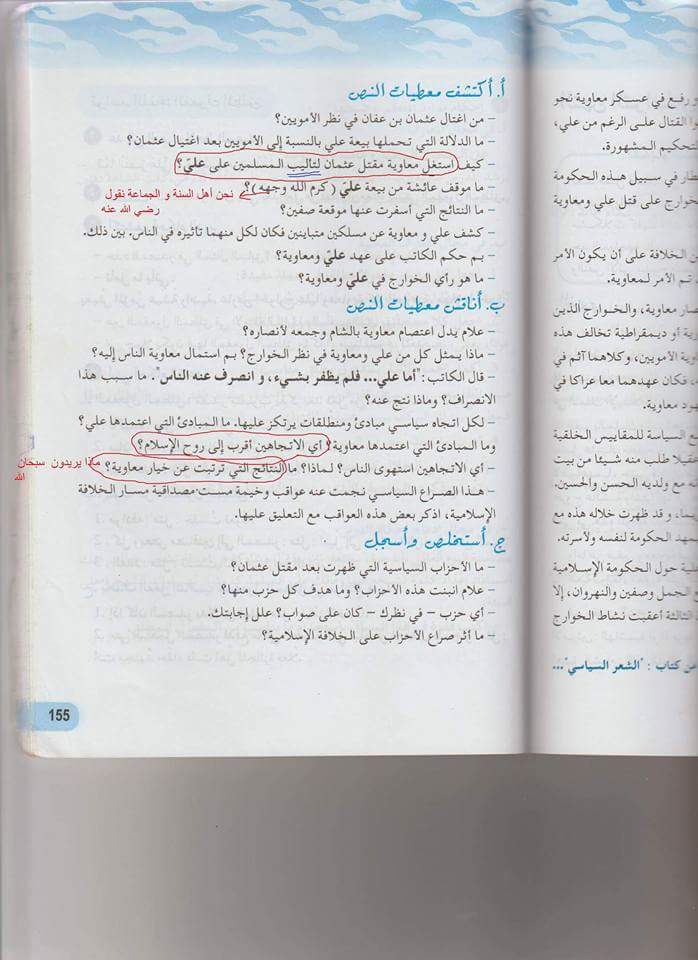 أ. أكتشف معطيات النص
- من اغتال عثمان بن عفان في نظر الأمويين؟
- ما الدلالة التي تحملها بيعة علي بالنسبة إلى الأمويين بعد اغتيال عثمان؟
- كيف استغل معاوية مقتل عثمان لتأليب المسلمين على عليّ؟
- ما موقف عائشة من بيعة عليّ (كرم الله وجهه)؟
نحن أهل السنة و الجماعة نقول
رضي الله عنه
- ما النتائج التي أسفرت عنها موقعة صفين؟
- كشف علي و معاوية عن مسلكين متباينين فكان لكل منهما تأثيره في الناس. بين ذلك.
- بم حكم الكاتب على عهد عليّ ومعاوية؟
- ما هو رأي الخوارج في عليّ ومعاوية؟
ب. أناقش معطيات النص
- علام يدل اعتصام معاوية بالشام وجمعه لأنصاره؟
- ماذا يمثل كل من علي ومعاوية في نظر الخوارج؟ بم استمال معاوية الناس إليه؟
- قال الكاتب: "أما علي... فلم يظفر بشيء، و انصرف عنه الناس". ما سبب هذا
الانصراف؟ وماذا نتج عنه؟
- لكل اتجاه سياسي مبادئ ومنطلقات يرتكز عليها. ما المبادئ التي اعتمدها علي؟
وما المبادئ التي اعتمدها معاوية؟ أي الاتجاهين أقرب إلى روح الإسلام؟
- أي الاتجاهين استهوى الناس؟ لماذا؟ ما النتائج التي ترتبت عن خيار معاوية؟
ماذا يريدون سبحان
الله
- هذا الصراع السياسي نجمت عنه عواقب وخيمة مست مصداقية مسار الخلافة
الإسلامية، اذكر بعض هذه العواقب مع التعليق عليها.
ج. أستخلص وأسجل
- ما الأحزاب السياسية التي ظهرت بعد مقتل عثمان؟
- علام انبنت هذه الأحزاب؟ وما هدف كل حزب منها؟
- أي حزب - في نظرك - كان على صواب؟ علل إجابتك.
- ما أثر صراع الأحزاب على الخلافة الإسلامية؟
155
و رفع في عسكر معاوية نحو
وا القتال على الرغم من علي،
لتحكيم المشهورة.
طار في سبيل هذه الحكومة
خوارج على قتل علي ومعاوية
ن الخلافة على أن يكون الأمر
تم الأمر لمعاوية.
صار معاوية، والخوارج الذين
رية أو ديمقراطية تخالف هذه
ة الأمويين، وكلاهما آثم في
فكان عهدهما معا عراكا في
هود معاوية.
ع السياسة للمقاييس الخلقية
عقيلا طلب منه شيئا من بيت
ه مع ولديه الحسن والحسين.
ما، و قد ظهرت خلال هذه مع
يمهد الحكومة لنفسه ولأسرته.
علية حول الحكومة الإسلامية
ع الجمل وصفين والنهروان، إلا
الثالثة أعقبت نشاط الخوارج
من كتاب : "الشعر السياسي"...